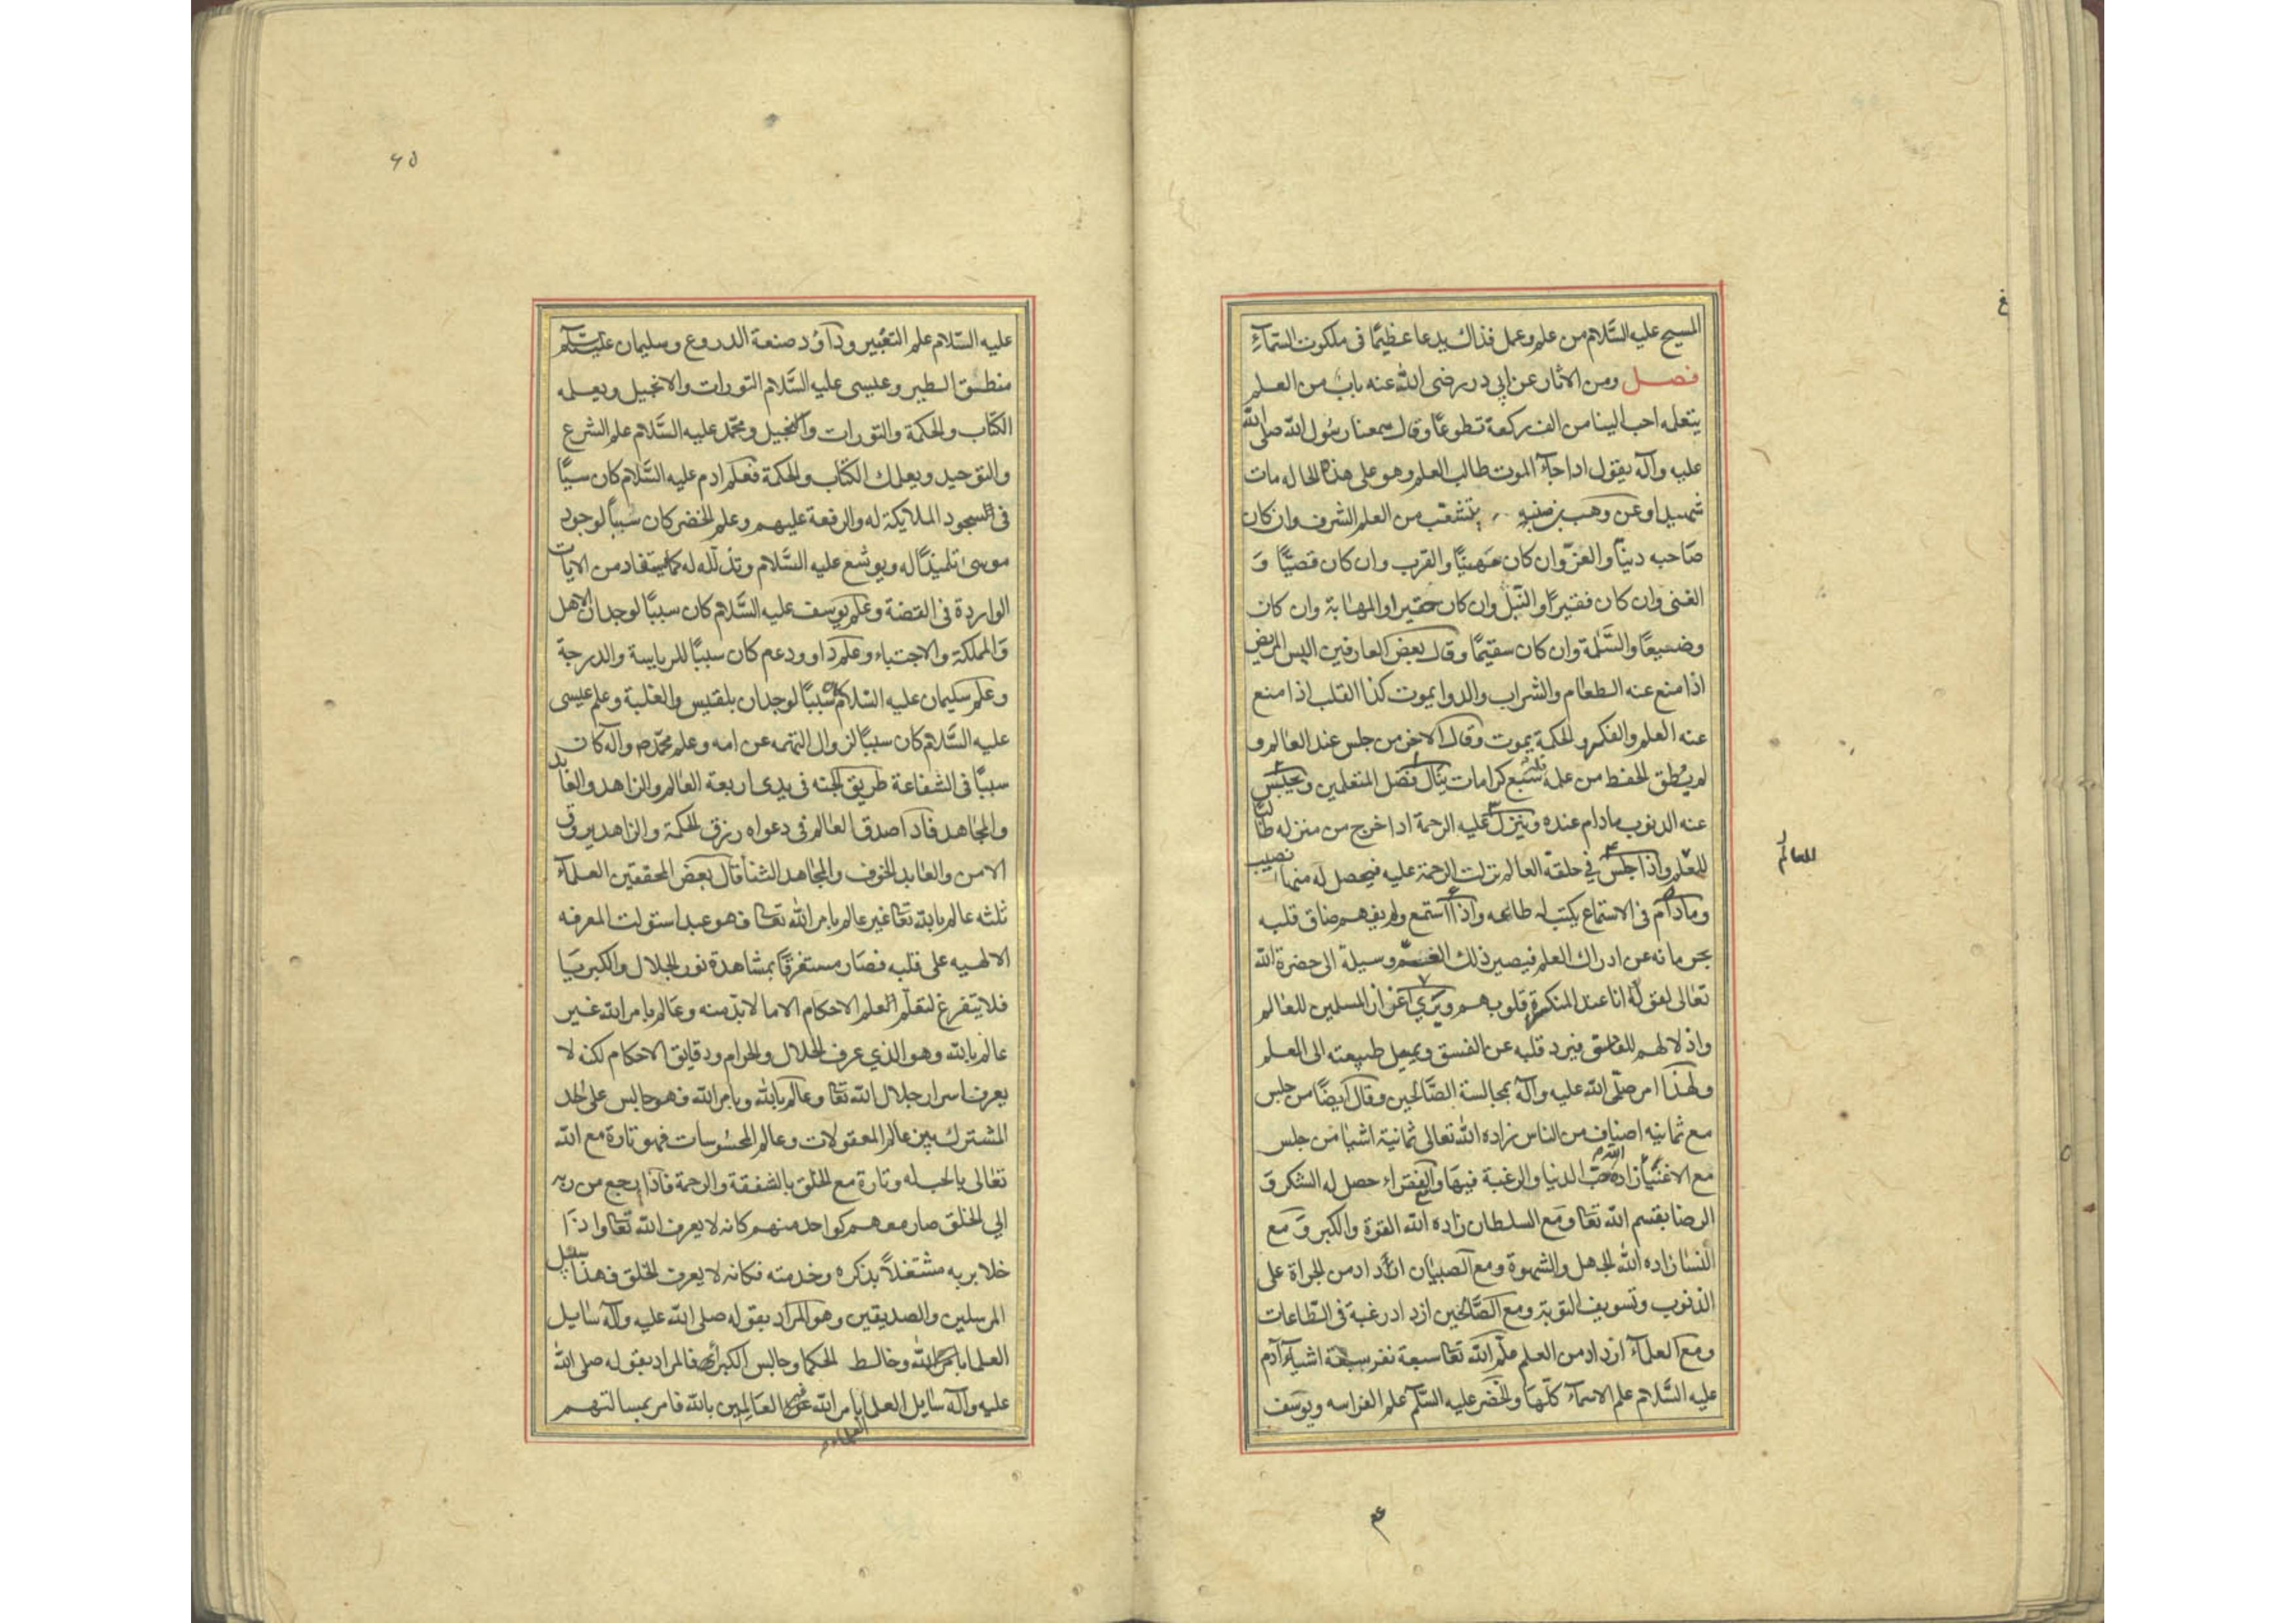 المسيح عليه السَّلام من علم وعمل فذاك يدعا عظيمًا فى ملكوت السّمآءِ
فصل ومن الاثار عن ابى ذر رضى الله عنه باب من العلم
يتعلمه احب الينا من الف ركعة تطوعًا وقال سمعنا رسُول الله صلى الله
عليه وآله يقول اذا جآءَ الموت طالب العلم وهو على هذه الحاله مات
شهيدا وعن وهب بن منبه يتشعّب من العلم الشرف وان كان
صَاحبه دنيّا والعزّ وان كان مَهينًا والقرب وان كان قصيًّا وَ
الغنى وان كان فقيرًا والنّبل وان كان حقيرا والمهَابة وان كان
وضيعًا والسَّلامة وان كان سقيمًا وقال بعض العارفين اليس المريض
اذا منع عنه الطعَام والشراب والدوا يموت كذا القلب اذا منع
عنه العلم والفكر والحكمة يموت وقال الاخر من جلس عند العالم و
لم يُطق الحفظ من علمه فله سَبع كرامات ينال فضل المتعلمين ويحبس
عنه الذنوب مادام عنده وينزل عليه الرحمة اذا خرج من منزله طالبًا
للعلم واذا جلس في حلقة العالم نزلت الرحمة عليه فيحصل له منها نصيب
ومادام فى الاستماع يكتب له طاعه واذا استمع ولم يفهم ضاق قلبه
بحرمانه عن ادراك العلم فيصير ذلك الغم وسيلة الى حضرة الله
تعالى لقوله انا عند المنكسرة قلوبهم ويرى اعزاز المسلمين للعالم
واذلالهم للفاسق فيرد قلبه عن الفسق ويميل طبيعته الى العلم
ولهذا امر صلّى الله عليه وآله بمجالسة الصَّالحين وقال ايضًا من جلس
مع ثمانيه اصناف من الناس زاده الله تعالى ثمانية اشيا من جلس
مع الاغنيآ زاده الله حبّ الدنيا والرغبة فيهَا ومع الفقراء حصل له الشكر وَ
الرضا بقسم الله تعا ومَع السلطان زاده الله القوة والكبر وَ مع
النسَا زاده الله الجهل والشهوة ومع الصبيَان ازداد من الجراة على
الذنوب وتسويف التوبة ومع الصَّالحين ازداد رغبة فى الطّاعات
ومع العلمآء ازداد من العلم علّم الله تعا سبعة نفر سبعة اشيآء آدم
عليه السَّلام علم الاسمآء كلّهَا والخضر عليه السَّلم علم الفراسه ويوسَف
للعالم
عليه السّلام علم التعبير وداؤد صنعة الدروع وسليمان عليه السّلم
منطق الطير وعيسى عليه السَّلام التورات والانجيل ويعلمه
الكتاب والحكمة والتورات والانجيل ومحمّد عليه السَّلام علم الشرع
والتوحيد ويعلمك الكتاب والحكمة فعلم ادم عليه السَّلام كان سببًا
فى السجود الملايكة له والرفعة عليهم وعلم الخضر كان سَببًا لوجود
موسى تلميذًا له ويوشع عليه السَّلام وتذلّله له كما يستفاد من الايات
الواردة فى القصة وعلم يوسف عليه السَّلام كان سببًا لوجدان الاهل
وَالمملكة والاجتباء وعلم داوود عم كان سببًا للرياسة والدرجة
وعلم سليمان عليه السّلام كان سَببًا لوجدان بلقيس والغلبة وعلم عيسى
عليه السَّلام كان سببًا لزوال التهمه عن امه وعلم محمّد ص وآله كان
سببًا فى الشفاعة طريق الجنه فى يدى اربعة العالم والزاهد والعابد
والمجاهد فاذا صدق العالم فى دعواه رزق الحكمة والزاهد يرزق
الامن والعابد الخوف والمجاهد الثنا قال بعض المحققين العلمآء
ثلثه عالم بالله تعا غير عالم بامر الله تعا فهو عبد استولت المعرفه
الالهيه على قلبه فصَار مستغرقًا بمشاهدة نور الجلال والكبريَا
فلا يتفرغ لتعلّم العلم الاحكام الا ما لا بدّ منه وعالم بامر الله غير
عالم بالله وهو الذي عرف الحلال والحرام ودقايق الاحكام لكنه لا
يعرف اسرار جلال الله تعا وعالم بالله وبامر الله فهو جالس على الحد
المشترك بين عالم المعقولات وعالم المحسُوسات فهو تارة مع الله
تعالى بالحب له وتارة مع الخلق بالشفقة والرحمة فاذا رجع من ربه
الى الخلق صار معهم كواحد منهم كانه لا يعرف الله تعا واذا
خلا بربه مشتغلاً بذكره وخدمته فكانه لا يعرف الخلق فهذا سبيل
المرسلين والصديقين وهو المراد بقوله صلى الله عليه وآله سَايل
العلما بامر الله وخالط الحكما وجالس الكبرآء فالمراد بقوله صلى الله
عليه وآله سَايل العلما بامر الله غير العَالمين بالله فامر بمسالتهم
العلماء
٦٥